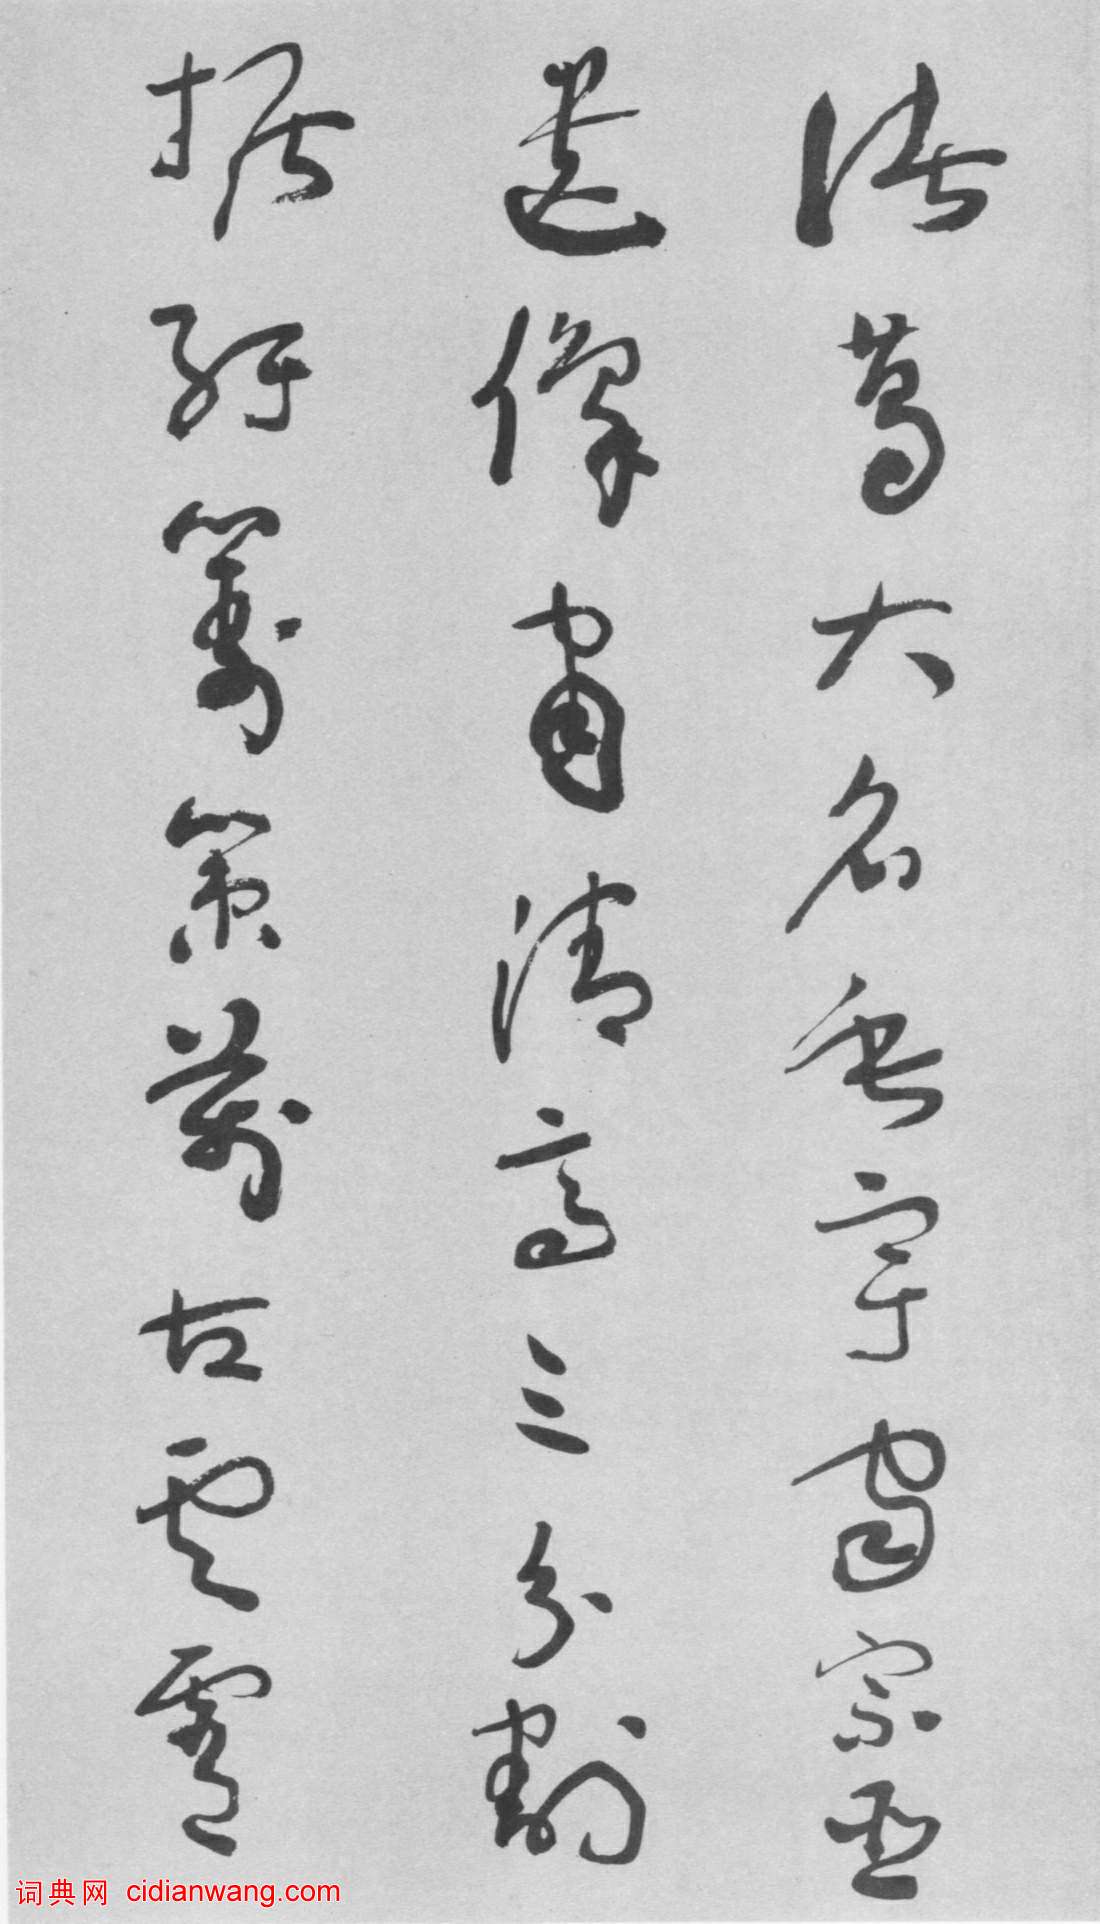 諸葛大名垂宇宙宗臣
遺像肅清高三分割
據紆籌策萬古雲霄
词典网 cidianwang.com